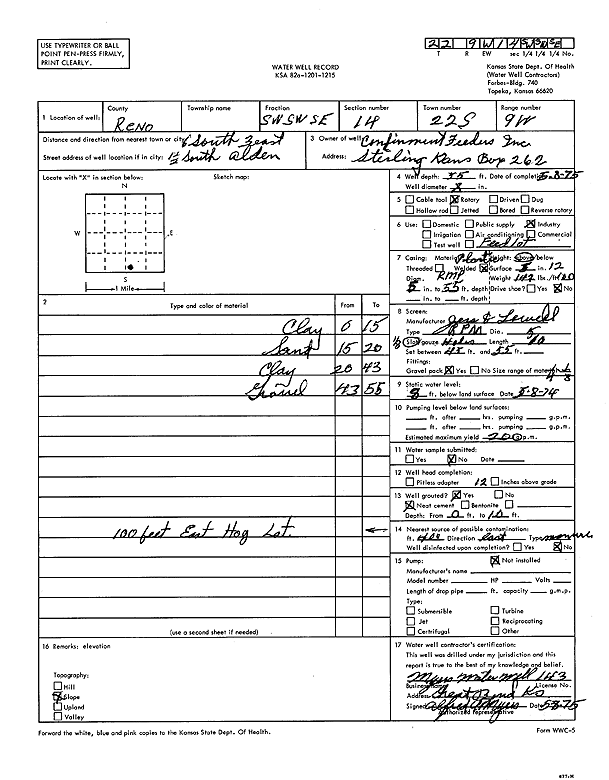 USE TYPEWRITER OR BALL
POINT PEN-PRESS FIRMLY,
PRINT CLEARLY.
22 9W 14 SWSWSE
T R EW sec 1/4 1/4 1/4 No.
WATER WELL RECORD
KSA 82a-1201-1215
Kansas State Dept. Of Health
(Water Well Contractors)
Forbes-Bldg. 740
Topeka, Kansas 66620
1 Location of well: County Township name Fraction Section number Town number Range number
Reno SWSWSE 14 22S 9W
Distance and direction from nearest town or city: South East
Street address of well location if in city: South Alden
3 Owner of well: Confinment Feeders Inc.
Address: Sterling Kans Box 262
Locate with "X" in section below: Sketch map:
N
W E
S
1 Mile
4 Well depth: 55 ft. Date of completion 5-8-75
Well diameter 8 in.
5 Cable tool X Rotary Driven Dug
Hollow rod Jetted Bored Reverse rotary
6 Use: Domestic Public supply X Industry
Irrigation Air conditioning Commercial
Test well Feed lot
7 Casing: Material Plastic Height: above/below
Threaded Welded X Surface in. 12
Diam. RMP Weight lbs./ft.
5 in. to 55 ft. depth Drive shoe? Yes X No
in. to ft. depth
2 Type and color of material From To
Clay 0 15
Sand 15 20
Clay 20 43
Gravel 43 55
100 feet East Hog Lot.
(use a second sheet if needed)
8 Screen:
Manufacturer Jess & Lowell
Type RPM Dia. 5
1/8 Slot/gauze Holes Length 10
Set between 45 ft. and 55 ft.
Fittings:
Gravel pack X Yes No Size range of material
9 Static water level:
8 ft. below land surface Date 5-8-74
10 Pumping level below land surfaces:
ft. after hrs. pumping g.p.m.
ft. after hrs. pumping g.p.m.
Estimated maximum yield 200 g.p.m.
11 Water sample submitted:
Yes X No Date
12 Well head completion:
Pitless adapter 12 Inches above grade
13 Well grouted? X Yes No
X Neat cement Bentonite
Depth: From 0 ft. to 10 ft.
14 Nearest source of possible contamination:
ft. Direction East Type manure
Well disinfected upon completion? Yes X No
15 Pump: X Not installed
Manufacturer's name
Model number HP Volts
Length of drop pipe ft. capacity g.m.p.
Type:
Submersible Turbine
Jet Reciprocating
Certrifugal Other
16 Remarks: elevation
Topography:
Hill
X Slope
Upland
Valley
17 Water well contractor's certification:
This well was drilled under my jurisdiction and this
report is true to the best of my knowledge and belief.
Myers Water Well 143
Business name License No.
Address Great Bend Ks
Signed Alfred Myers Date 5-8-75
Authorized representative
Forward the white, blue and pink copies to the Kansas State Dept. Of Health.
Form WWC-5